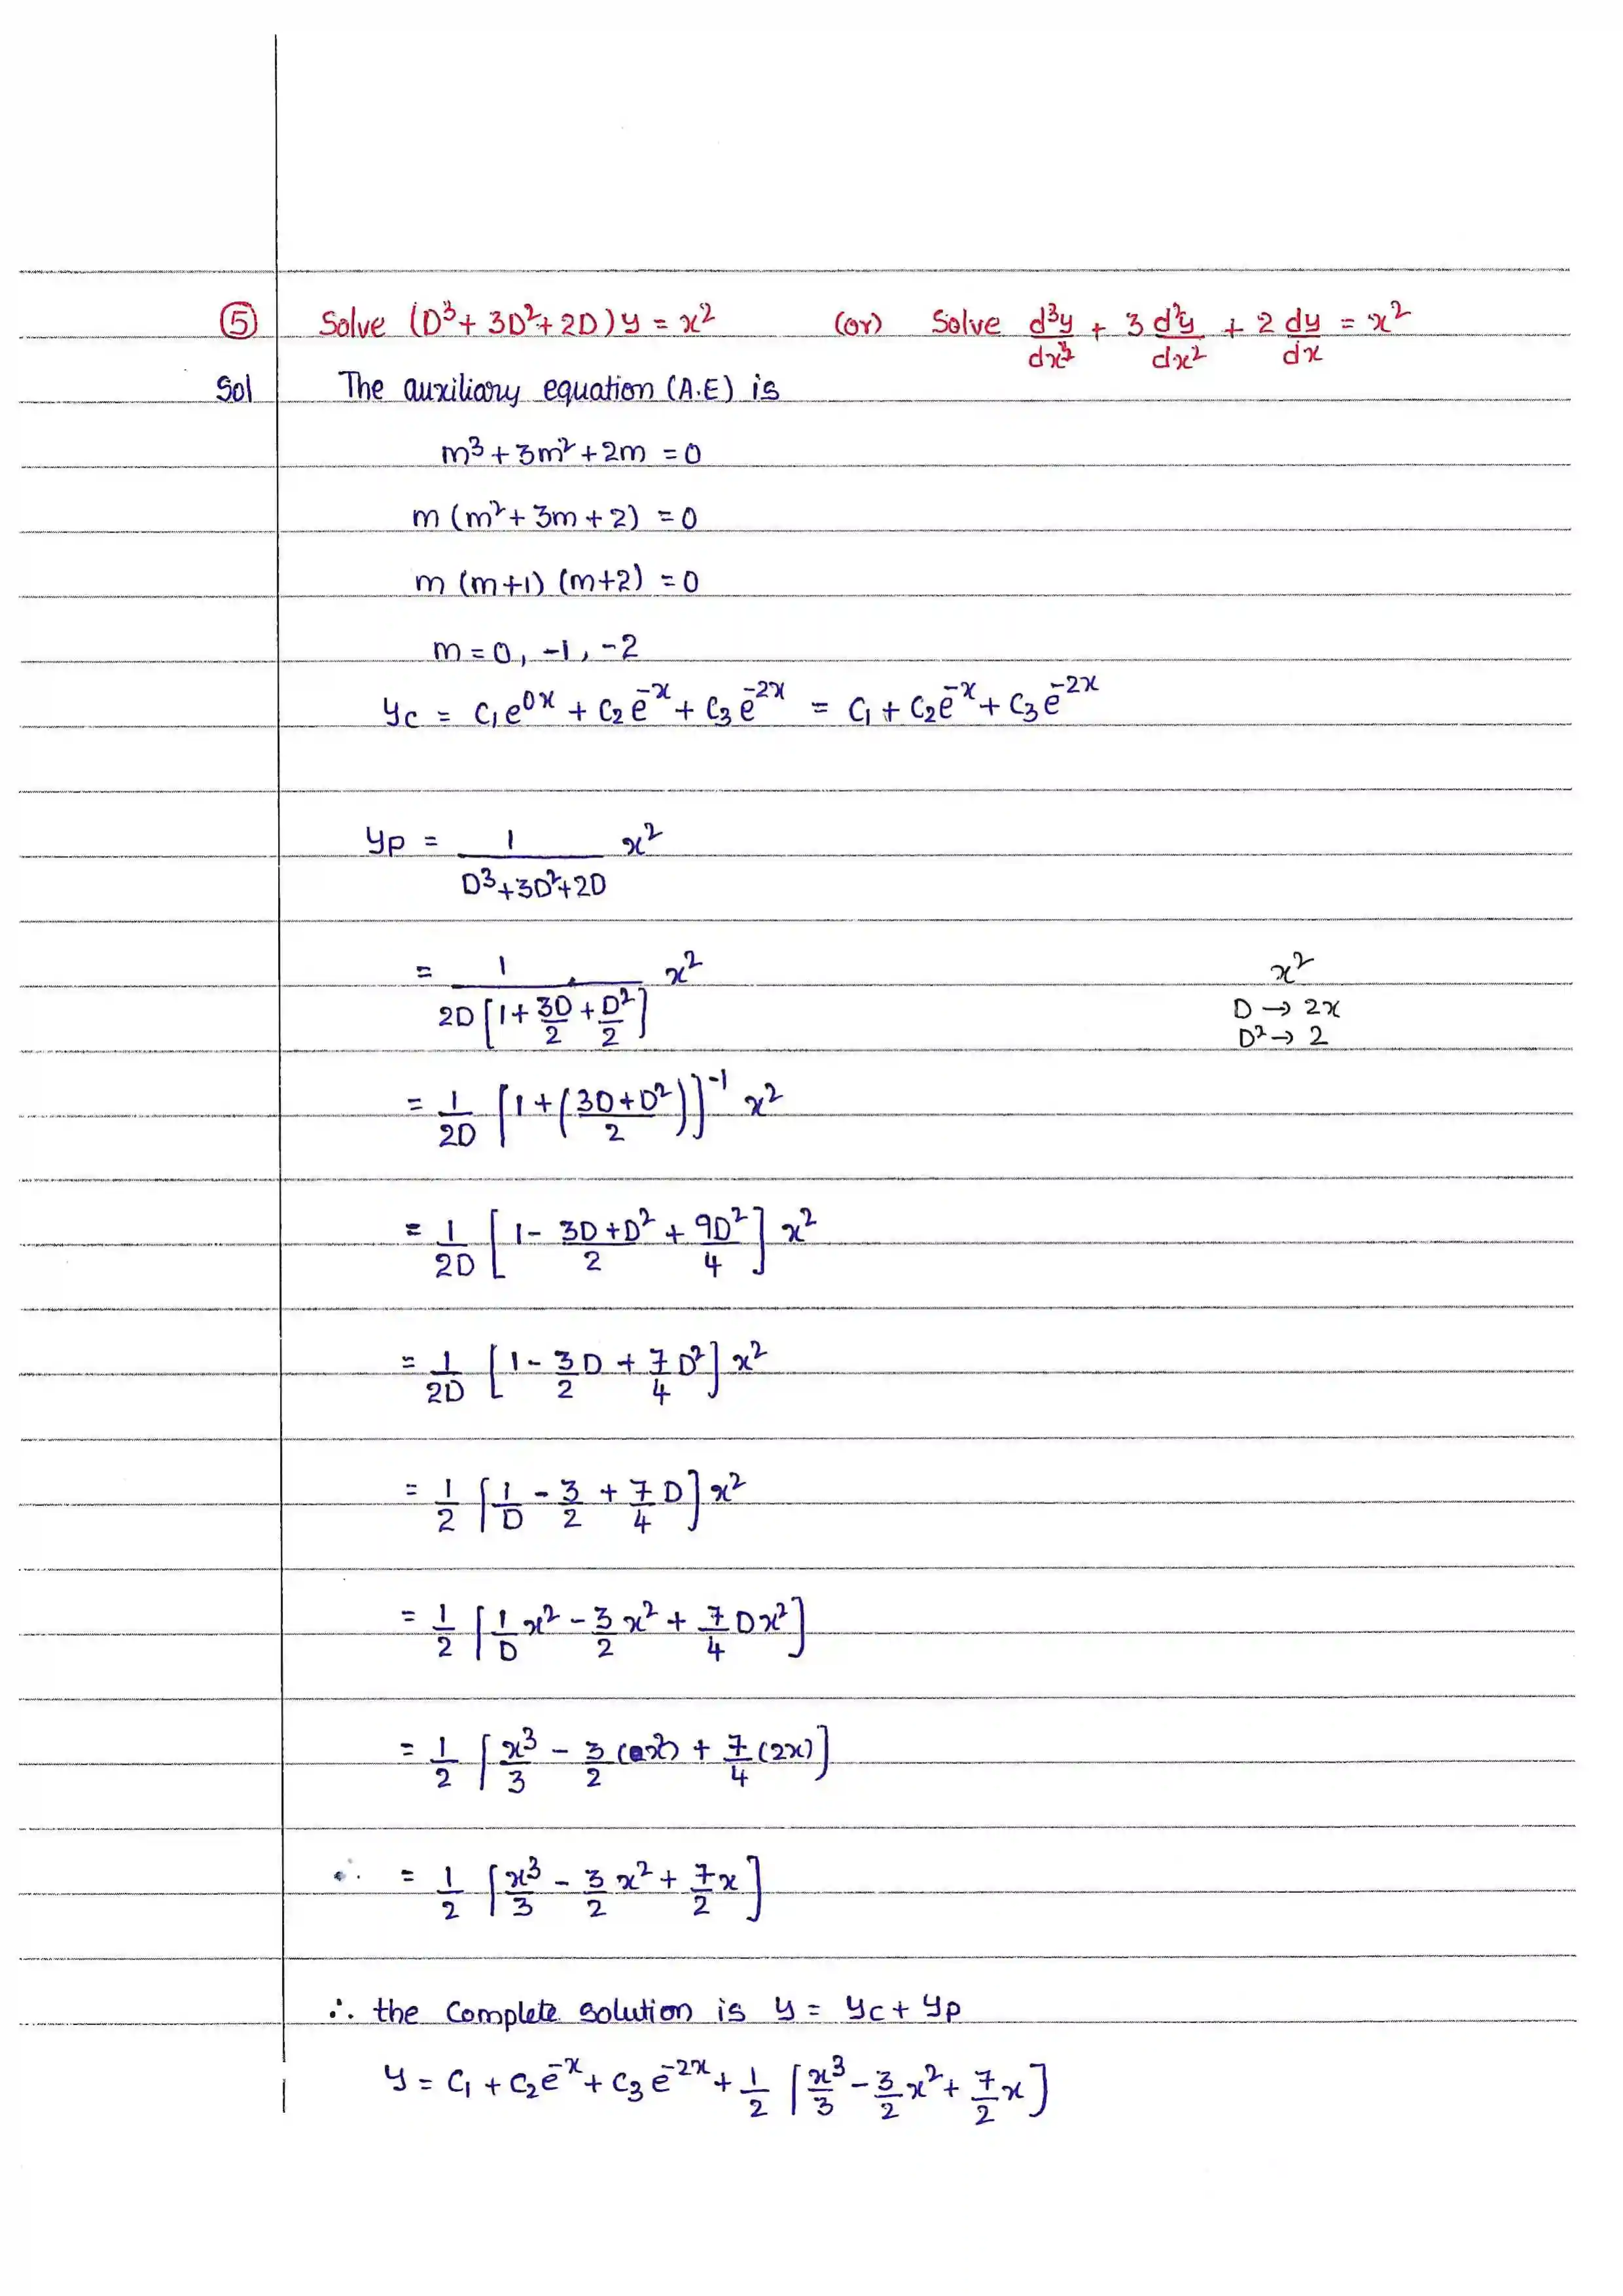 ⑤ Solve (D³ + 3D² + 2D) y = x² (or) Solve d³y/dx³ + 3 d²y/dx² + 2 dy/dx = x²
Sol The auxiliary equation (A.E) is
m³ + 3m² + 2m = 0
m (m² + 3m + 2) = 0
m (m+1) (m+2) = 0
m = 0, -1, -2
yc = C₁e⁰ˣ + C₂e⁻ˣ + C₃e⁻²ˣ = C₁ + C₂e⁻ˣ + C₃e⁻²ˣ
yp = 1/(D³+3D²+2D) x²
= 1/(2D[1 + 3D/2 + D²/2]) x²
x²
D → 2x
D² → 2
= 1/2D [1 + ((3D+D²)/2)]⁻¹ x²
= 1/2D [1 - (3D+D²)/2 + 9D²/4] x²
= 1/2D [1 - 3/2 D + 7/4 D²] x²
= 1/2 [1/D - 3/2 + 7/4 D] x²
= 1/2 [1/D x² - 3/2 x² + 7/4 Dx²]
= 1/2 [x³/3 - 3/2 (x²) + 7/4 (2x)]
∴ = 1/2 [x³/3 - 3/2 x² + 7/2 x]
∴ the complete solution is y = yc + yp
y = C₁ + C₂e⁻ˣ + C₃e⁻²ˣ + 1/2 [x³/3 - 3/2 x² + 7/2 x]